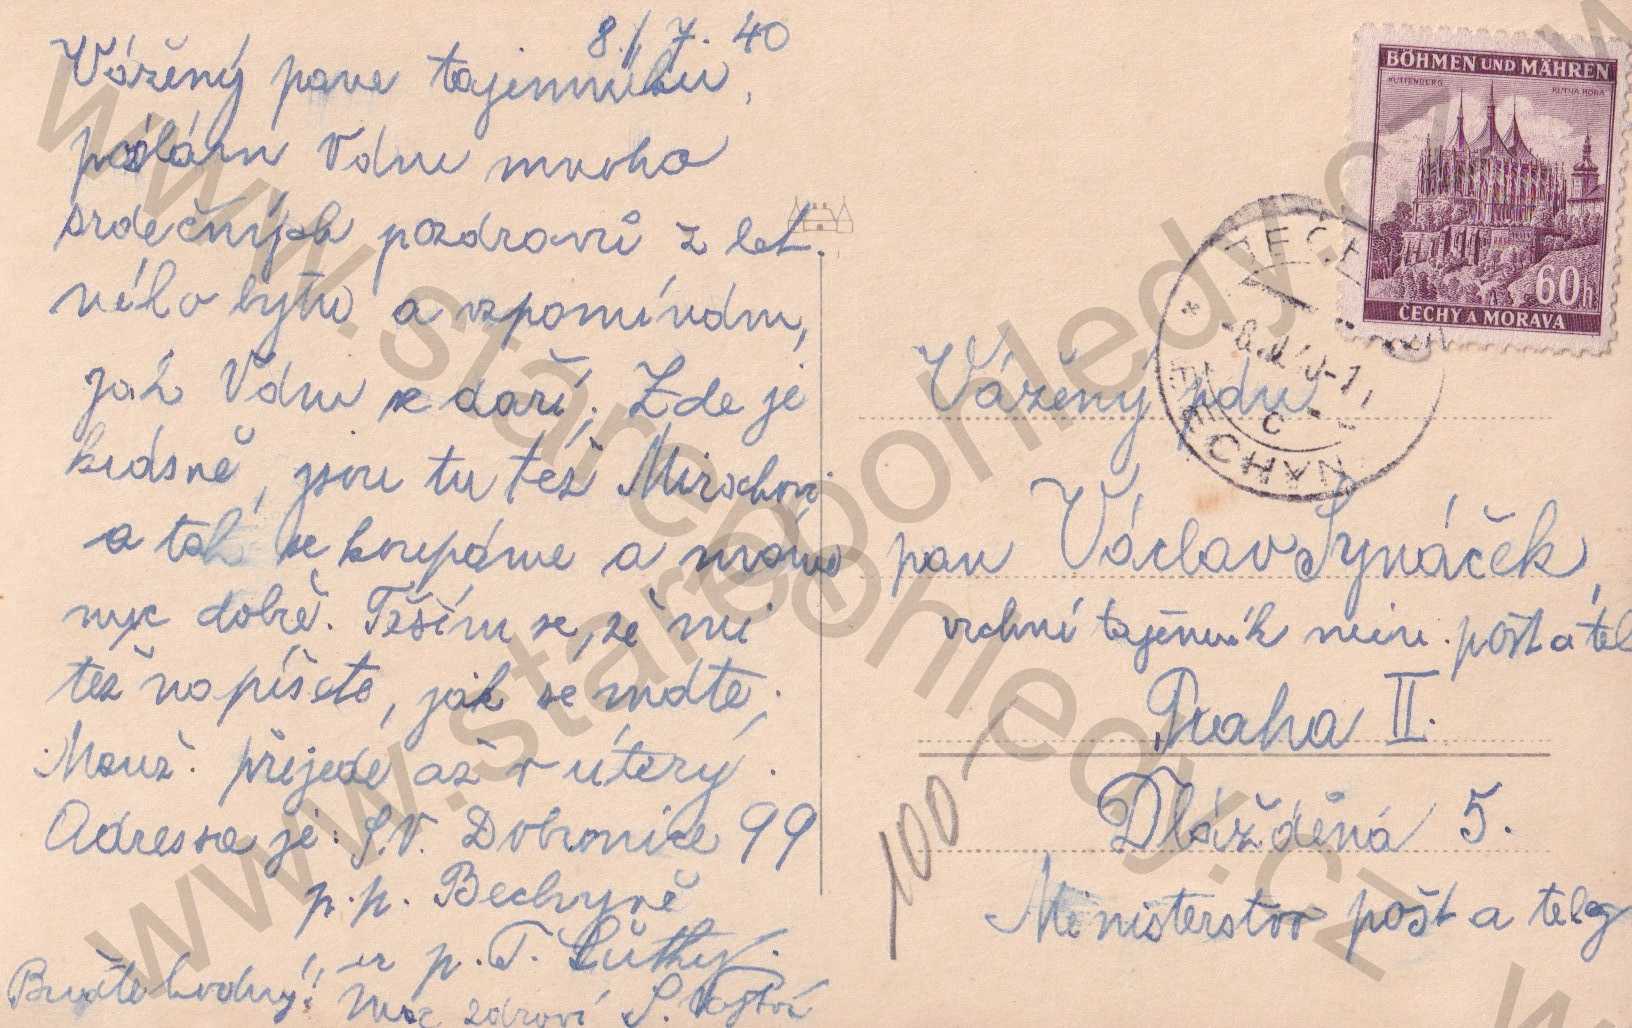 8./7. 40
Vážený pane tajemníku,
posílám Vám mnoho
srdečných pozdravů z let.
ního bytu a vzpomínám,
jak Vám se daří. Zde je
krásně, jsou tu též Mirochovi
a tak se koupáme a máme
dobře. Těším se, že mi
též napíšete, jak se máte.
Manž. přijede až v úterý.
Adressa je: S.V. Dobronice 99
p.p. Bechyně
p. T.
Buďte hodný! Moc zdraví S.
BÖHMEN UND MÄHREN
KUTTENBERG
KUTNÁ HORA
60h.
ČECHY A MORAVA
BECHYNĚ
Vážený pán
pan Václav Synáček,
vrchní tajemník min. pošt a tel
Praha II.
Dlážděná 5.
Ministerstvo pošt a teleg
100
www.starepohledy.cz
www.starepohledy.cz